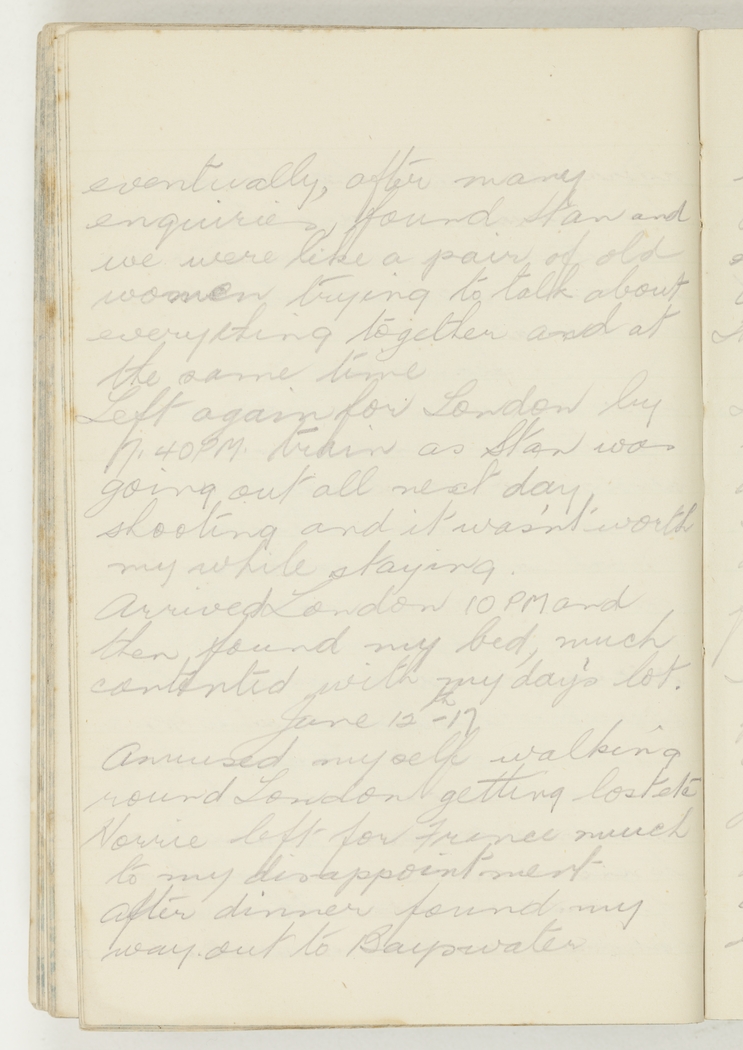 eventually, after many
enquiries, found Stan and
we were like a pair of old
women trying to talk about
everything together and at
the same time
Left again for London by
7.40PM. train as Stan was
going out all next day
shooting and it was'nt worth
my while staying.
Arrived London 10 PM and
then found my bed, much
contented with my day's lot.
June 12th-17
Amused myself walking
round London getting lost etc
Horrie left for France much
to my disappointment
After dinner found my
way out to Bayswater